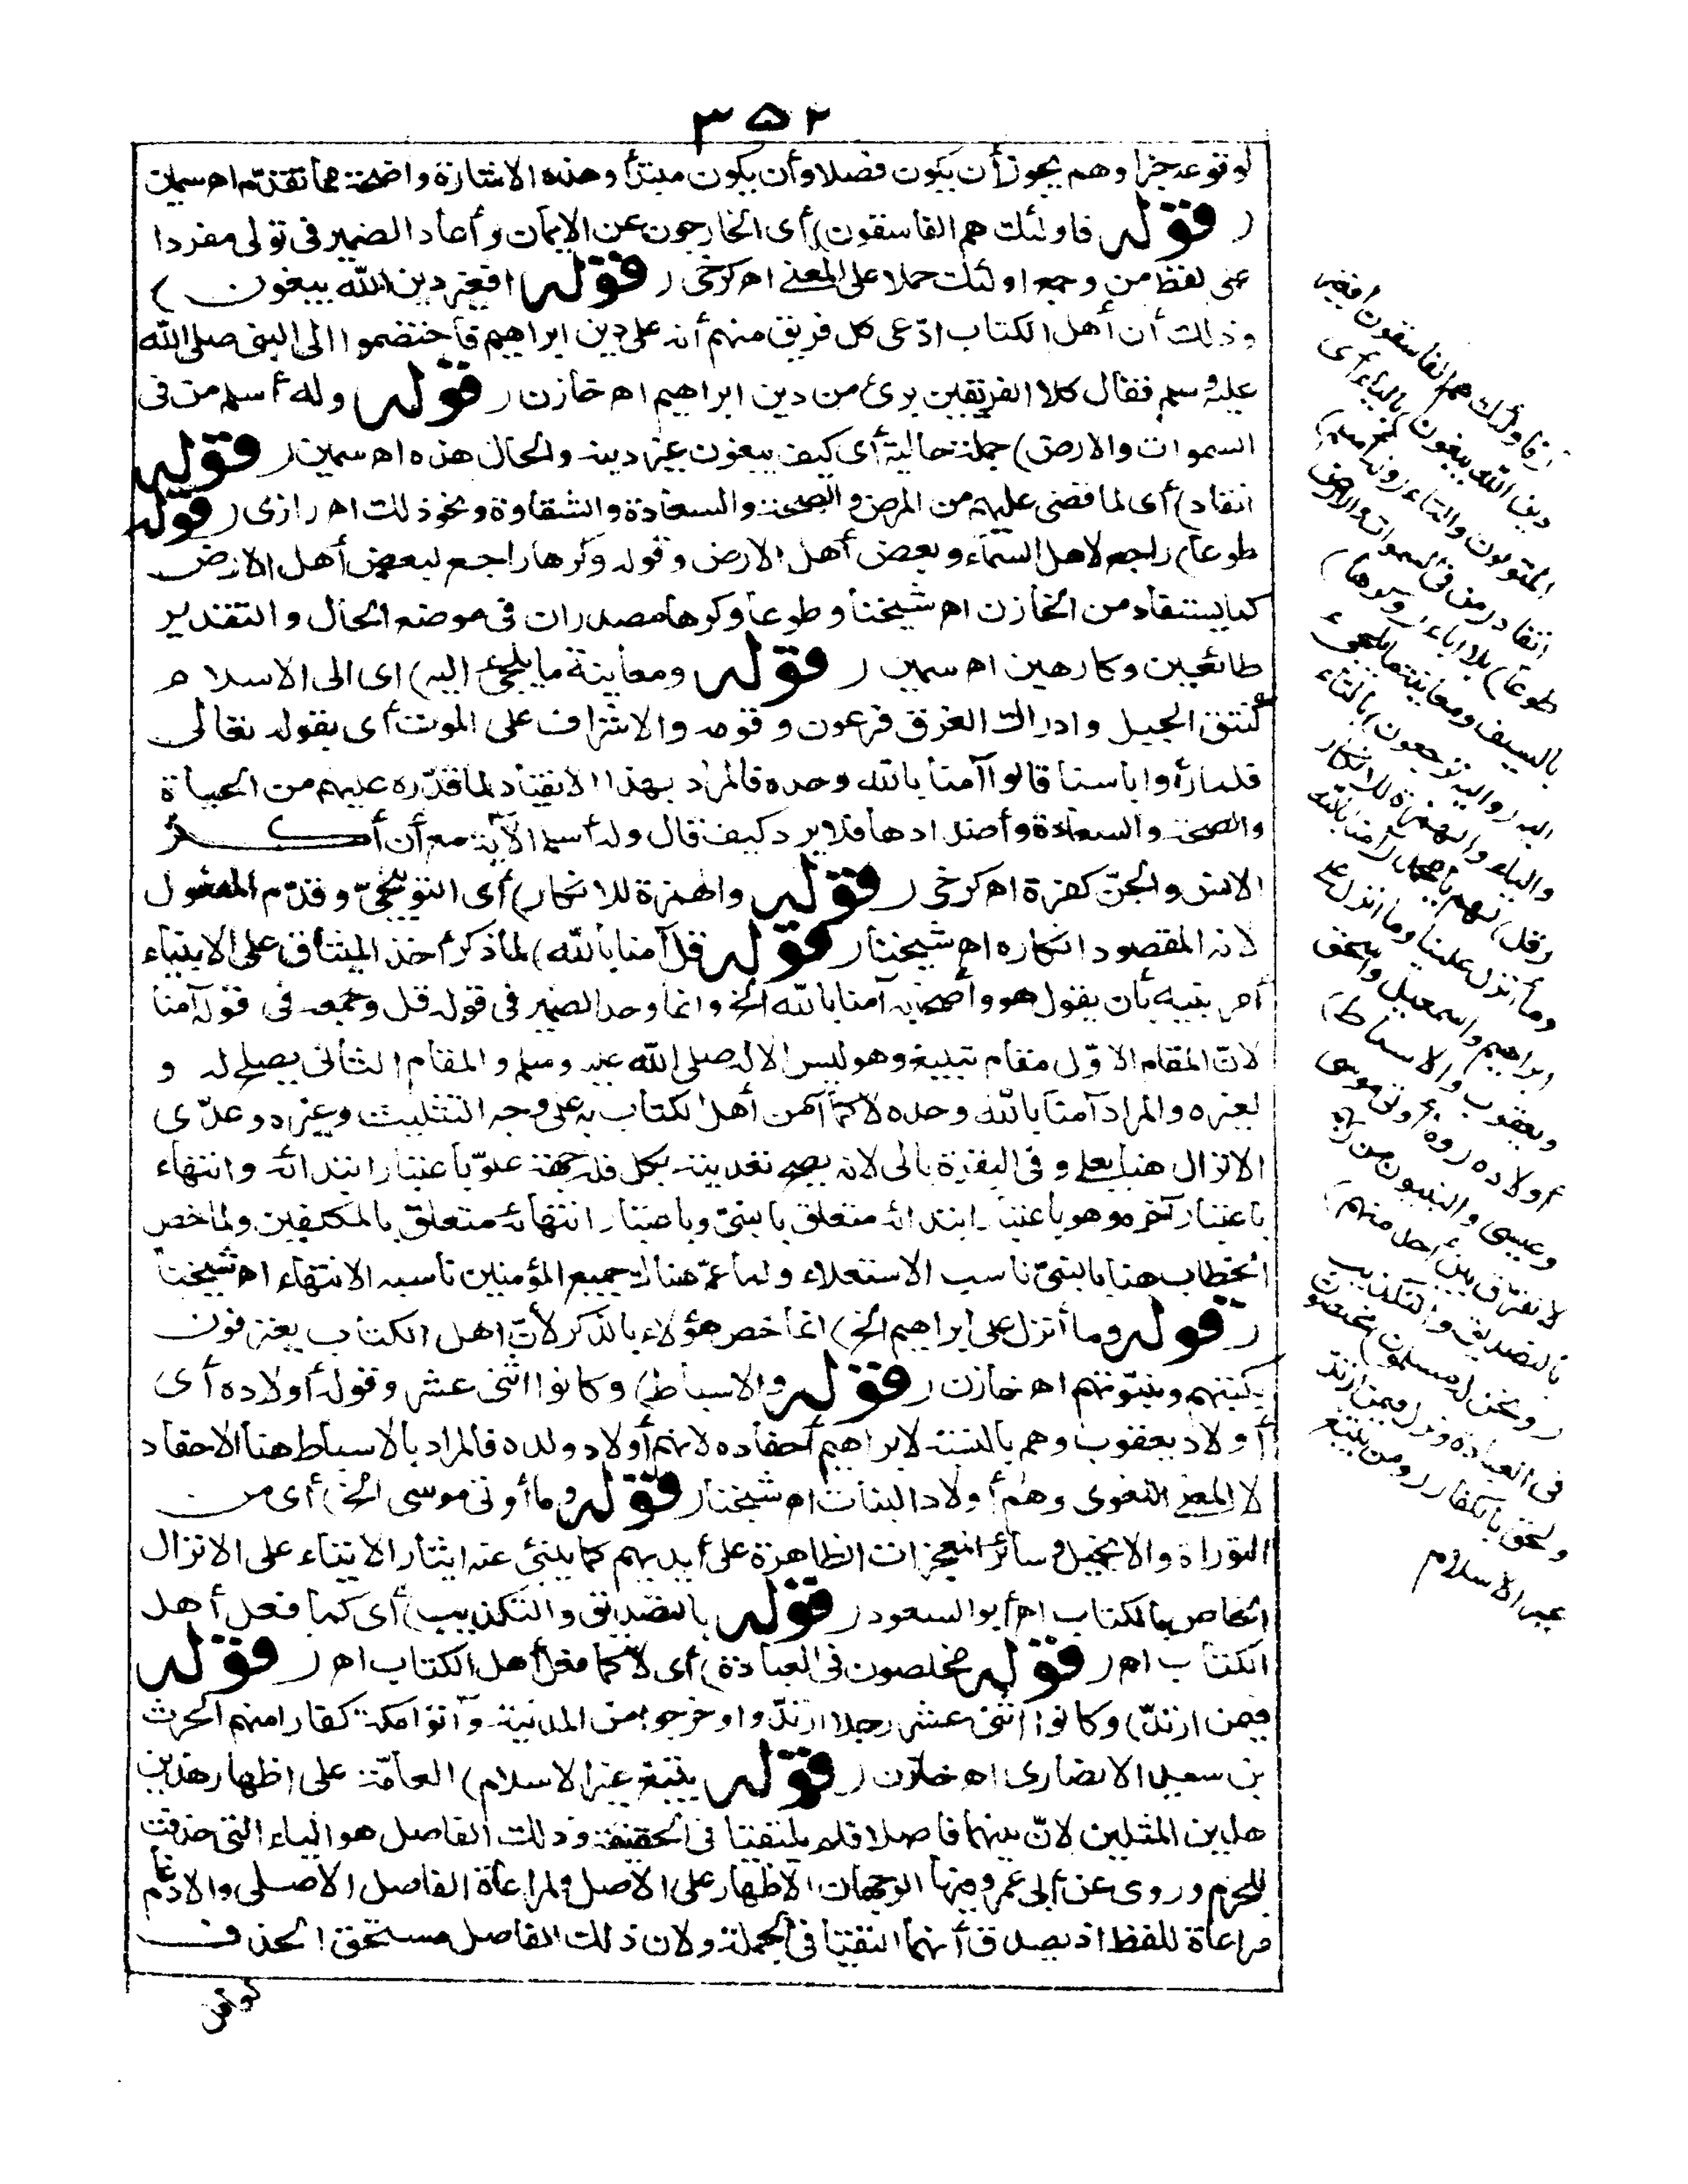 ٣٥٢
لوقوعه جزاء وهم يجوز أن يكون فصلا وأن يكون مبتدأ وهذه الاشارة واضحة مما تقدّم اه سمين
(قوله فاولئك هم الفاسقون) أى الخارجون عن الايمان وأعاد الضمير فى تولى مفردا
على لفظ من وجمع اولئك حملا على المعنى اه كرخى (قوله افغير دين الله يبغون)
وذلك أن أهل الكتاب ادّعى كل فريق منهم أنه على دين ابراهيم فاختصموا الى النبى صلى الله
عليه وسلم فقال كلا الفريقين برئ من دين ابراهيم اه خازن (قوله وله أسلم من فى
السموات والارض) جملة حالية أى كيف يبغون غير دينه والحال هذه اه سمين (قوله
انقاد) أى لما قضى عليهم من المرض والصحة والسعادة والشقاوة ونحو ذلك اه رازى (قوله
طوعا) راجع لاهل السماء وبعض أهل الارض وقوله وكرها راجع لبعض أهل الارض
كما يستفاد من الخازن اه شيخنا وطوعا وكرها مصدران فى موضع الحال والتقدير
طائعين وكارهين اه سمين (قوله ومعاينة ما يلجئ اليه) اى الى الاسلام
كنتق الجبل وادراك الغرق فرعون وقومه والاشراف على الموت أى بقوله تعالى
فلما رأوا بأسنا قالوا آمنا بالله وحده فالمراد بهذا الانقياد لما قدّره عليهم من الحياة
والصحة والسعادة وأضدادها فلا يرد كيف قال وله أسلم الآية مع أن أكثر
الانس والجنّ كفرة اه كرخى (قوله والهمزة للانكار) أى التوبيخىّ وقدّم المفعول
لانه المقصود انكاره اه شيخنا (قوله قل آمنا بالله) لما ذكر أخذ الميثاق على الانبياء
أمر نبيه بأن يقول هو وأصحابه آمنا بالله الخ وانما وحد الضمير فى قوله قل وجمعه فى قوله آمنا
لانّ المقام الاوّل مقام تبليغ وهو ليس الا له صلى الله عليه وسلم والمقام الثانى يصلح له و
لغيره والمراد آمنا بالله وحده لا كما آمن أهل الكتاب به على وجه التثليث وغيره وعدّى
الانزال هنا بعلى وفى البقرة بالى لانه يصح تعديته بكل فله جهة علوّ باعتبار ابتدائه وانتهاء
باعتبار آخره وهو باعتبار ابتدائه متعلق بالنبىّ وباعتبار انتهائه متعلق بالمكلفين ولما خص
الخطاب هنا بالنبىّ ناسب الاستعلاء ولما عمّ هناك جميع المؤمنين ناسبه الانتهاء اه شيخنا
(قوله وما أنزل على ابراهيم الخ) انما خص هؤلاء بالذكر لأنّ اهل الكتاب يعترفون
بكتبهم ونبوّتهم اه خازن (قوله والاسباط) وكانوا اثنى عشر وقوله أولاده أى
أولاد يعقوب وهم بالنسبة لابراهيم أحفاده لانهم أولاد ولده فالمراد بالاسباط هنا الاحفاد
لا المعنى اللغوى وهم أولاد البنات اه شيخنا (قوله وما أوتى موسى الخ) أى من
التوراة والانجيل وسائر المعجزات الظاهرة على أيديهم كما ينبئ عنه ايثار الايتاء على الانزال
الخاص بالكتاب اه أبو السعود (قوله بالتصديق والتكذيب) أى كما فعل أهل
الكتاب اه (قوله مخلصون فى العبادة) أى لا كما فعل أهل الكتاب اه (قوله
فيمن ارتدّ) وكانوا اثنى عشر رجلا ارتدّوا وخرجوا من المدينة وأتوا مكة كفارا منهم الحرث
بن سعيد الانصارى اه خازن (قوله يبتغ غير الاسلام) العامّة على اظهار هذين
هلين المثلين لانّ بينهما فاصلا فلم يلتقيا فى الحقيقة وذلك الفاصل هو الياء التى حذفت
للجزم وروى عن أبى عمرو فيها الوجهان الاظهار على الاصل ولمراعاة الفاصل الاصلى والادغام
مراعاة للفظ اذ يصدق أنهما التقيا فى الجملة ولان ذلك الفاصل مستحق الحذف
(فاولئك هم الفاسقون أفغير
دين الله يبغون) بالياء أى
المتولون والتاء (وله أسلم)
انقاد (من فى السموات والارض
طوعا) بلا اباء (وكرها)
بالسيف ومعاينة ما يلجىء
اليه (واليه ترجعون) بالتاء
والياء والهمزة للانكار
(قل) لهم يا محمد (آمنا بالله
وما أنزل علينا وما انزل على
ابراهيم واسمعيل واسحق
ويعقوب والاسباط)
أولاده (وما أوتى موسى
وعيسى والنبيون من ربهم
لا نفرّق بين أحد منهم)
بالتصديق والتكذيب
(ونحن له مسلمون) مخلصون
فى العبادة ونزل فيمن ارتد
ولحق بالكفار (ومن يبتغ
غير الاسلام